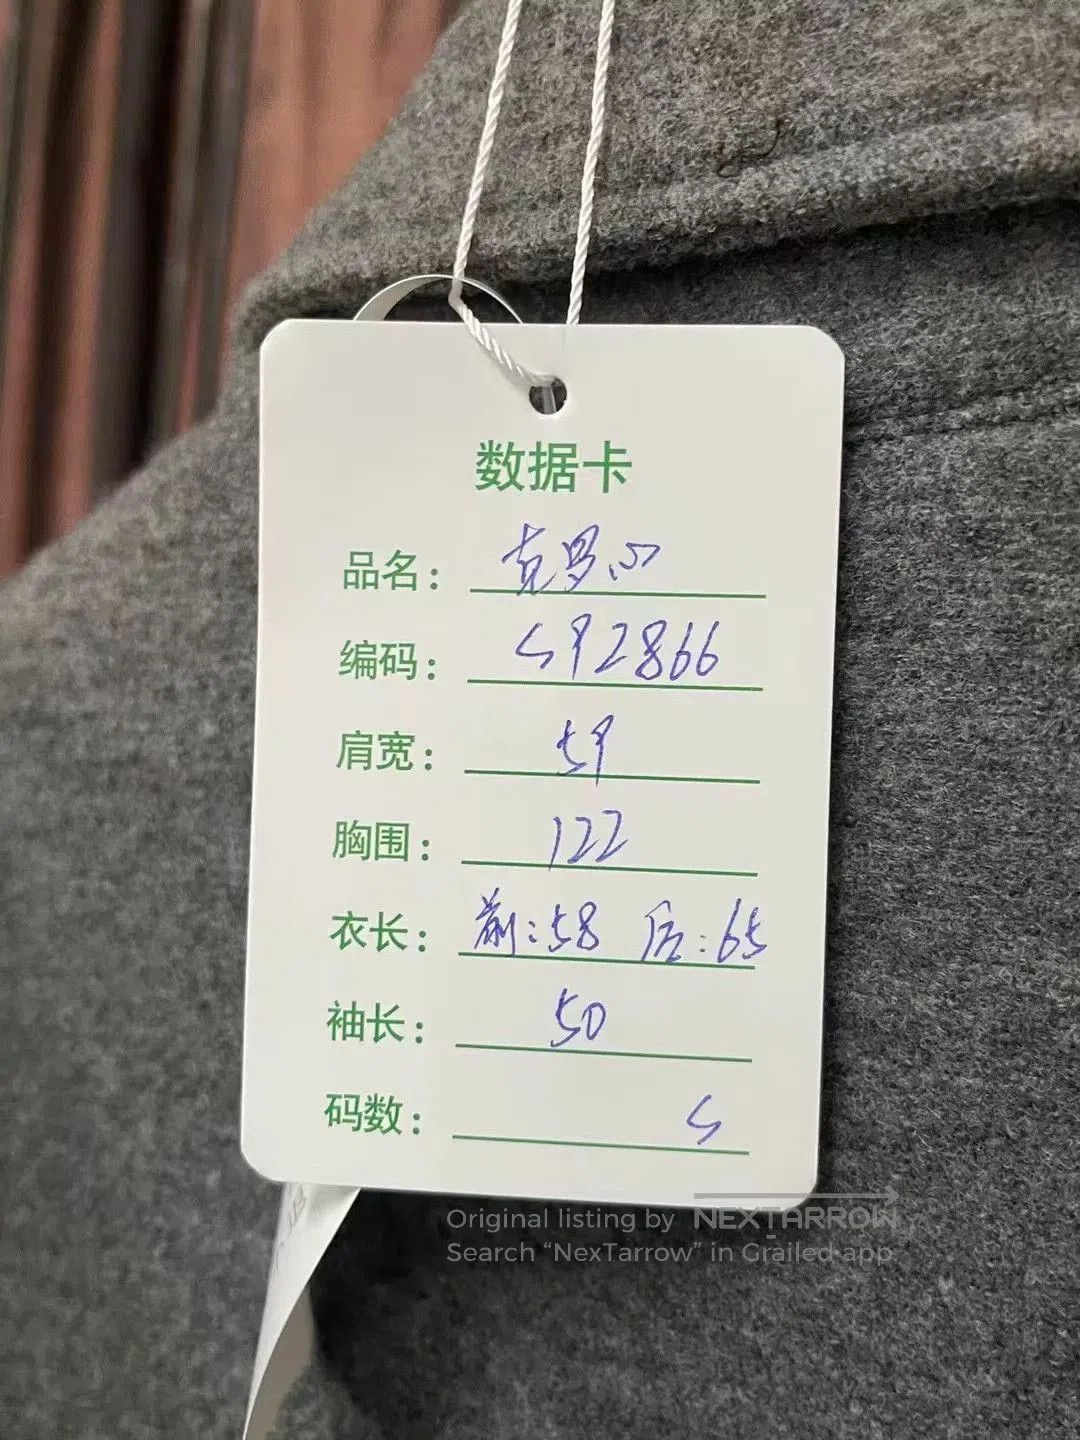 数据卡
品名: 克罗心
编码: S92866
肩宽: 59
胸围: 122
衣长: 前:58 后:65
袖长: 50
码数: S
Original listing by NEXTARROW
Search “NexTarrow” in Grailed app